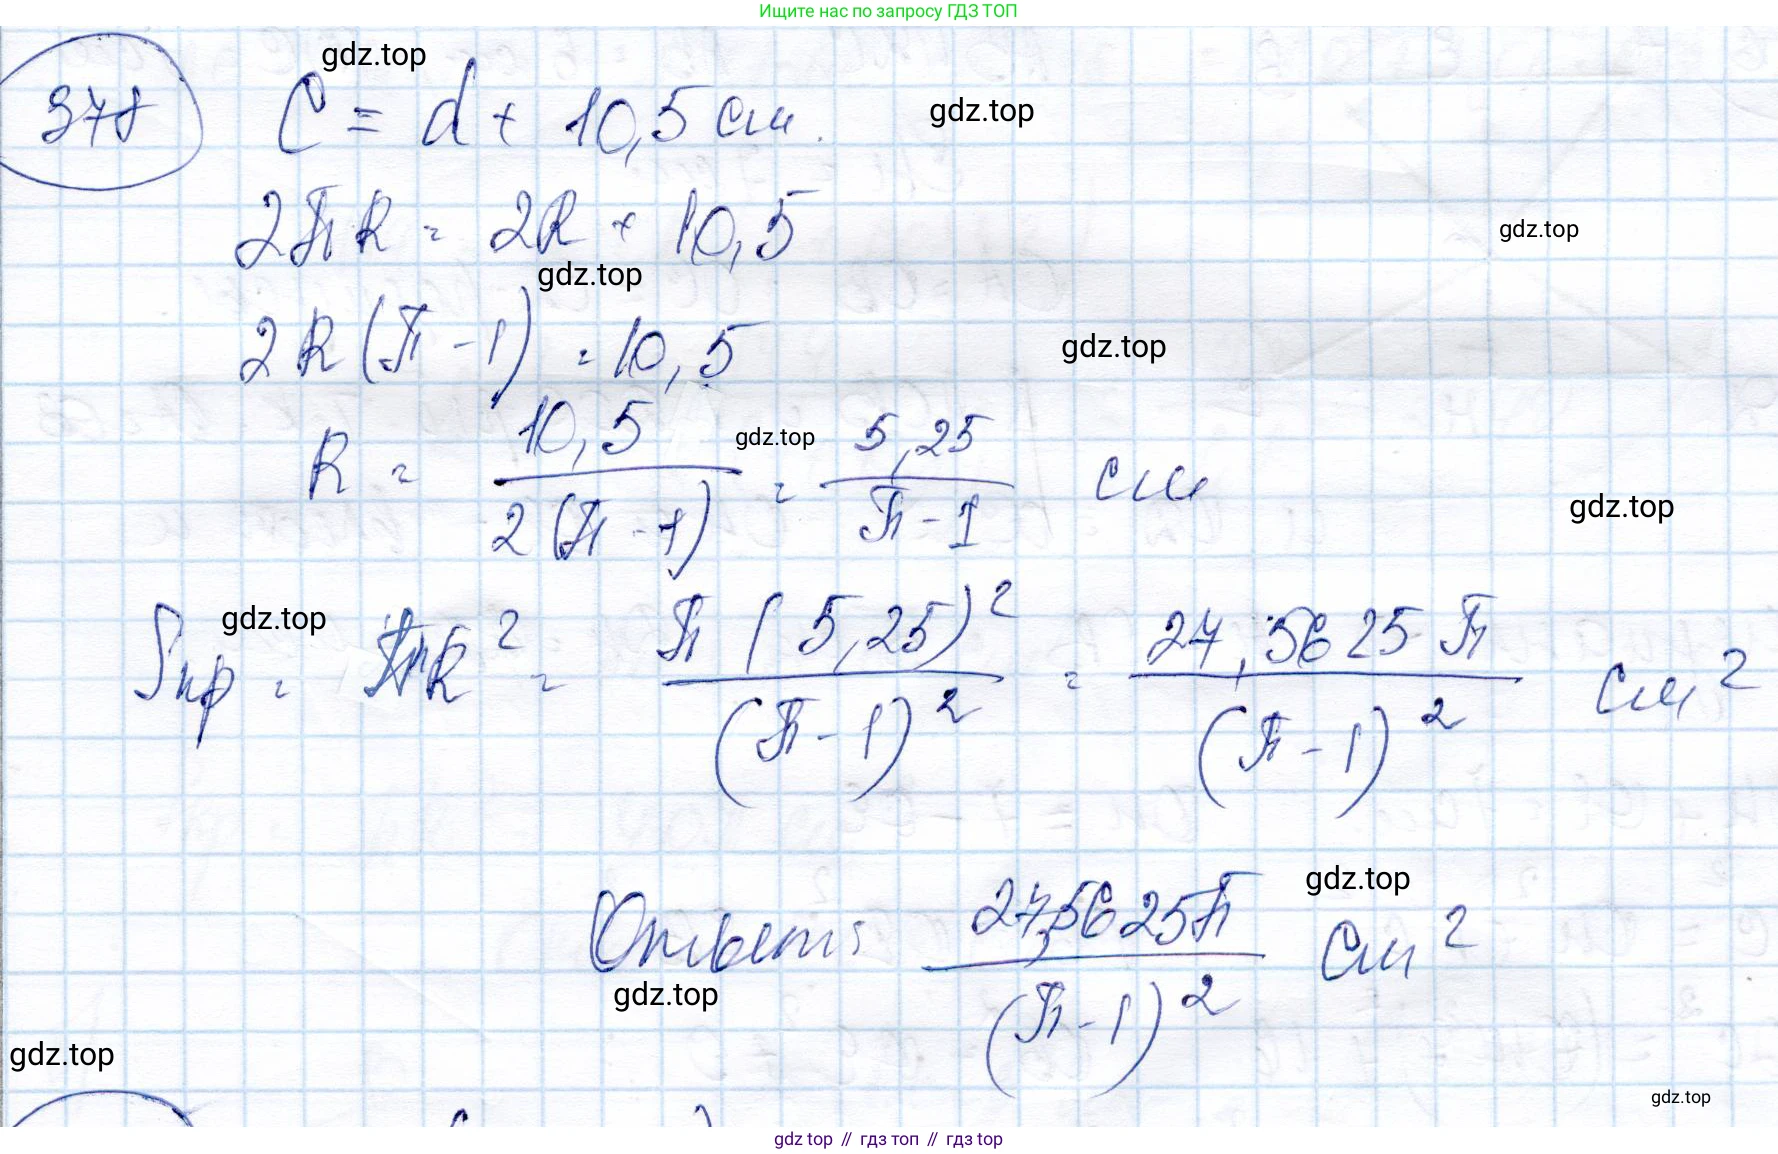 Ищите нас по запросу ГДЗ ТОП
gdz.top
378 C = d + 10,5 см. gdz.top
2πR = 2R + 10,5
gdz.top
gdz.top
2R(π - 1) = 10,5 gdz.top
R = 10,5 / 2(π - 1) = 5,25 / π - 1 см
gdz.top
gdz.top
gdz.top
Sкр = πR² = π(5,25)² / (π - 1)² = 27,5625π / (π - 1)² см²
gdz.top
Ответ: 27,5625π / (π - 1)² см²
gdz.top
gdz.top
gdz.top
gdz top // гдз топ // gdz top